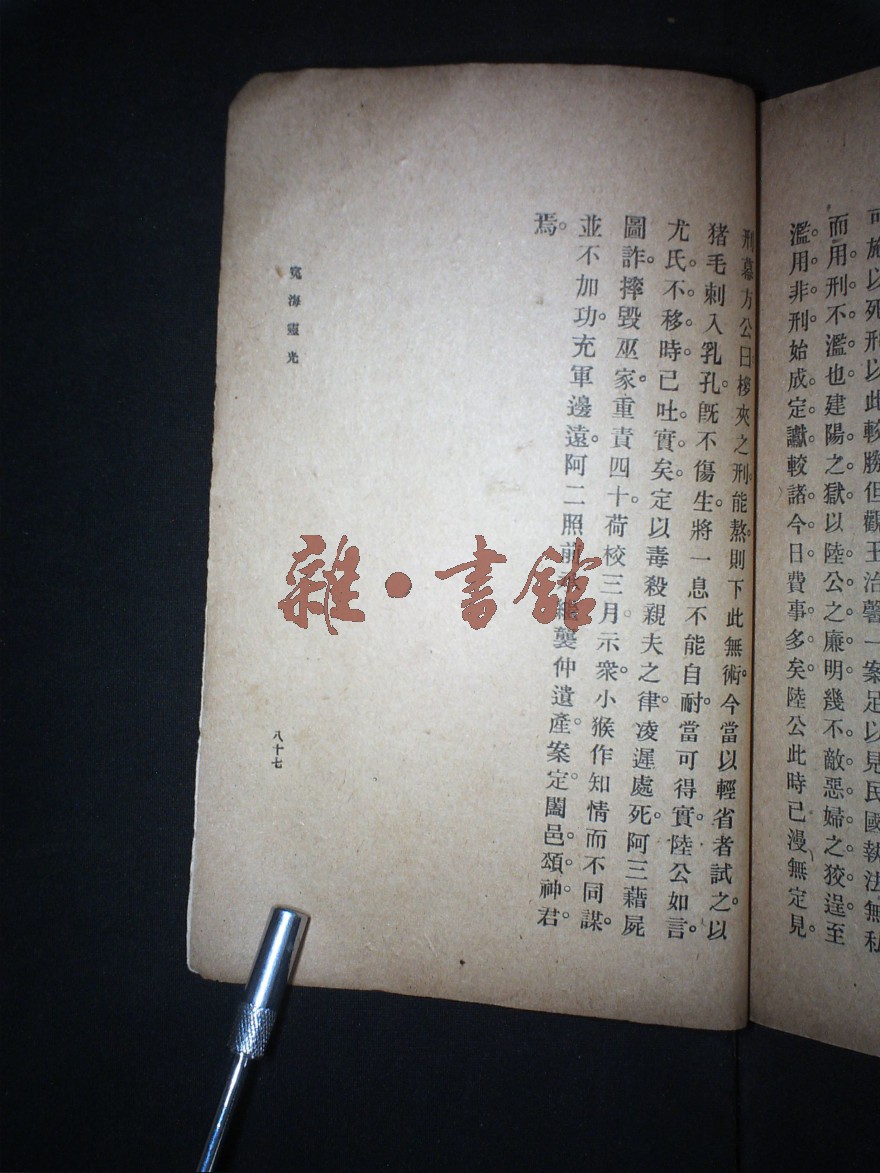 可施以死刑以此較勝但觀王治馨一案足以見民國執法無私
而用刑不濫也。建陽之獄。以陸公之廉明。幾不敵惡婦之狡逞。至
濫用非刑。始成定讞。較諸今日費事多矣。陸公此時已漫無定見。
刑幕方公曰。桚夾之刑。能熬則下此無術。今當以輕省者試之。以
猪毛刺入乳孔。旣不傷生。將一息不能自耐。當可得實。陸公如言。
尤氏不移時已吐實矣。定以毒殺親夫之律。凌遲處死。阿三藉屍
圖詐。摔毀巫家。重責四十。荷校三月示衆。小猴作知情而不同謀。
並不加功。充軍邊遠。阿二照前 襲仲遺產。案定。闔邑頌神君
焉。
冤海靈光
八十七
雜·書館